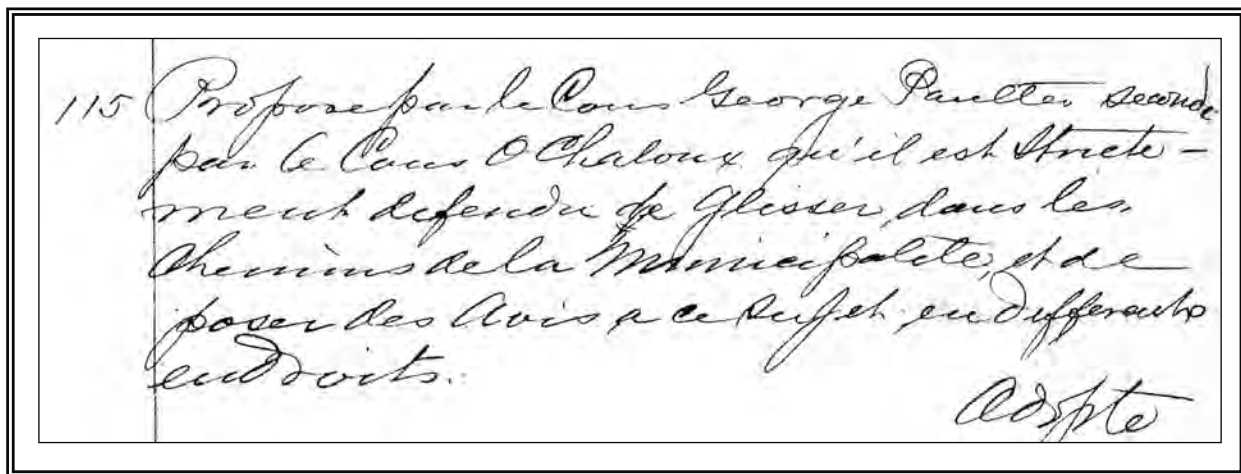 115 Propose par le Cons George Paultre secondé
par le Cons O Chaloux qu'il est Stricte -
ment defendu de Glisser dans les
Chemins de la Municipalite, et de
poser des Avis a ce Sujet en differents
endroits.
Adopte